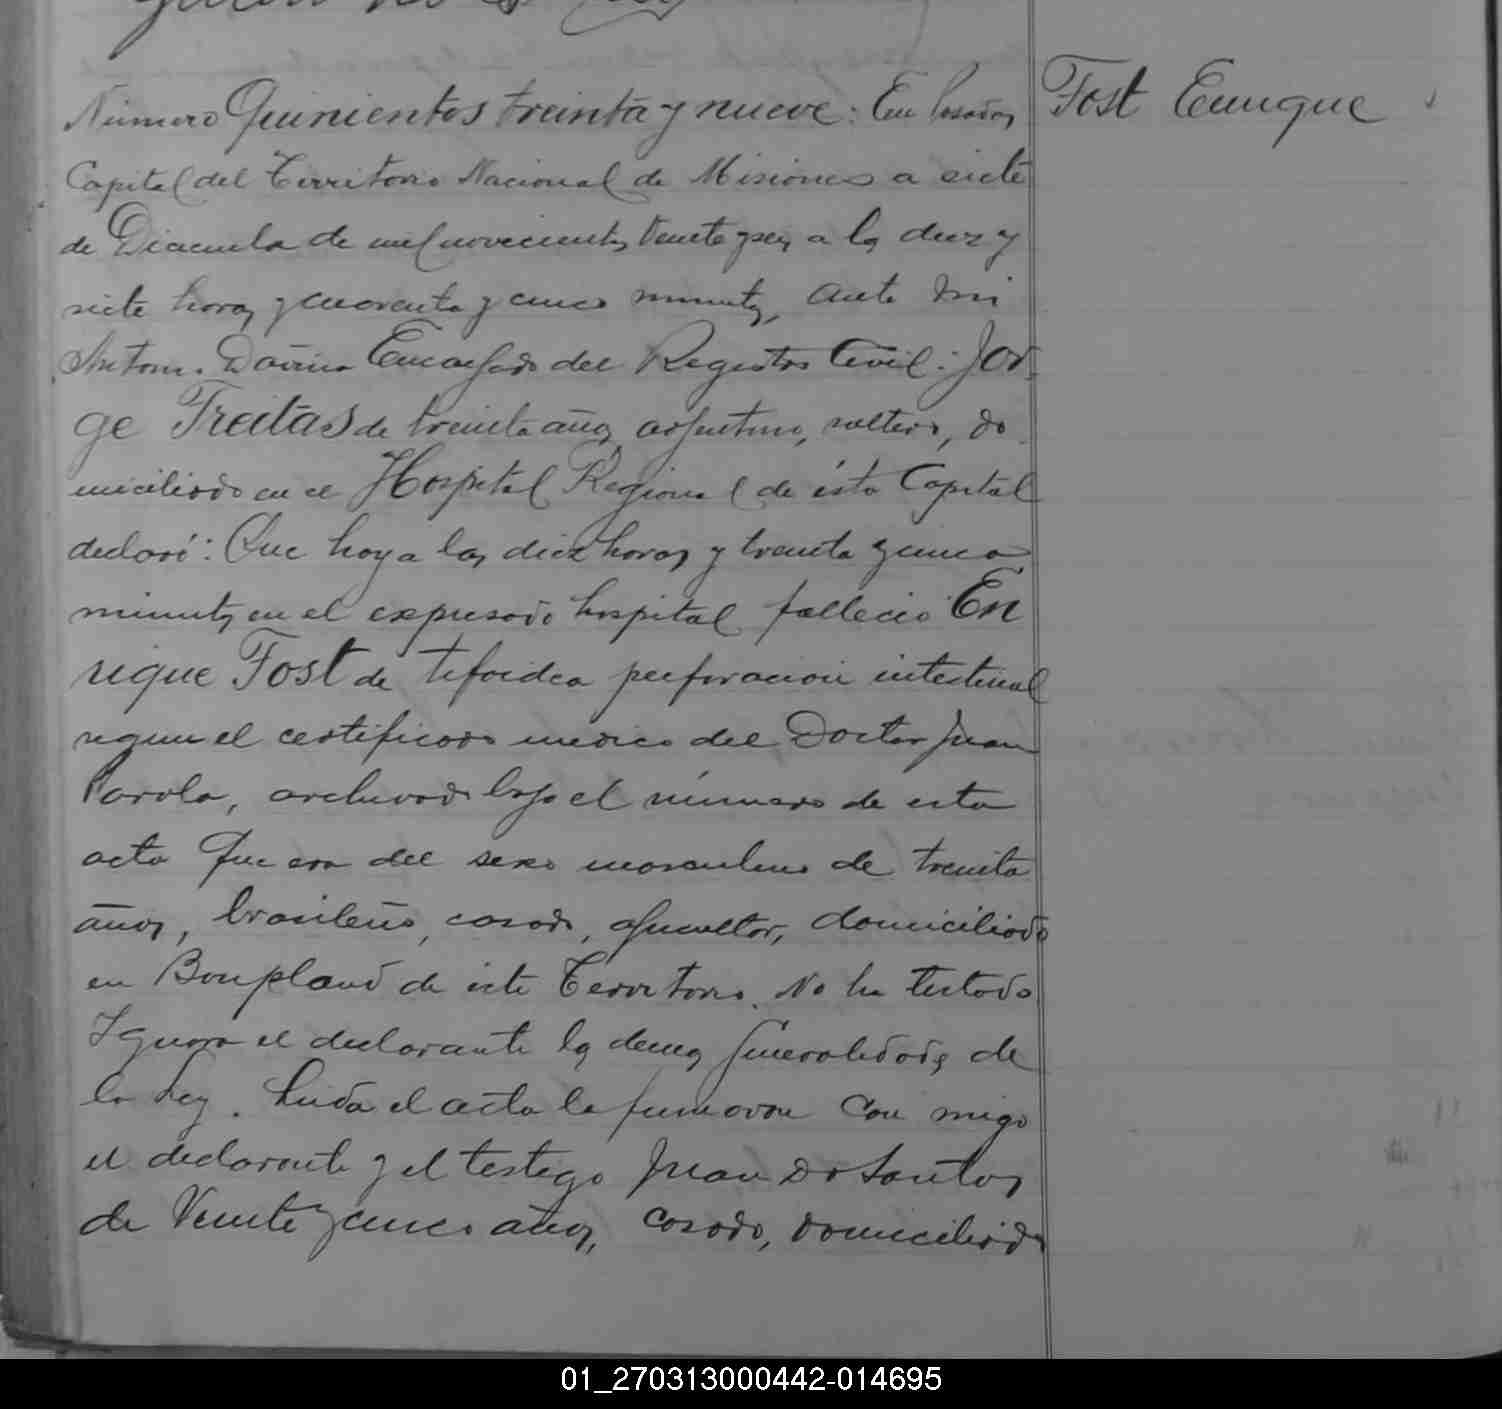 Número Quinientos treinta y nueve: En Posadas
Tost Enrique
Capital del Territorio Nacional de Misiones a siete
de Diciembre de mil novecientos veinte y seis a las diez y
siete horas y cuarenta y cinco minutos, ante mi
Antonio Encargado del Registro Civil: Jor-
ge Freitas de treinta años argentino, soltero, do
miciliado en el Hospital Regional de ésta Capital
declaró: Que hoy a las diez horas y treinta y cinco
minutos en el expresado hospital falleció En
rique Tost de tifoidea perforación intestinal
segun el certificado medico del Doctor Juan
Parola, archivado bajo el número de esta
acta Que era del sexo masculino de treinta
años, brasileño, casado, agricultor, domiciliado
en Bonpland de este Territorio. No ha testado
Ignora el declarante las demas generalidades de
la Ley. Leida el acta la firmaron con migo
el declarante y el testigo Juan Do Santos
de Veinte y cinco años, casado, domiciliado
01_270313000442-014695